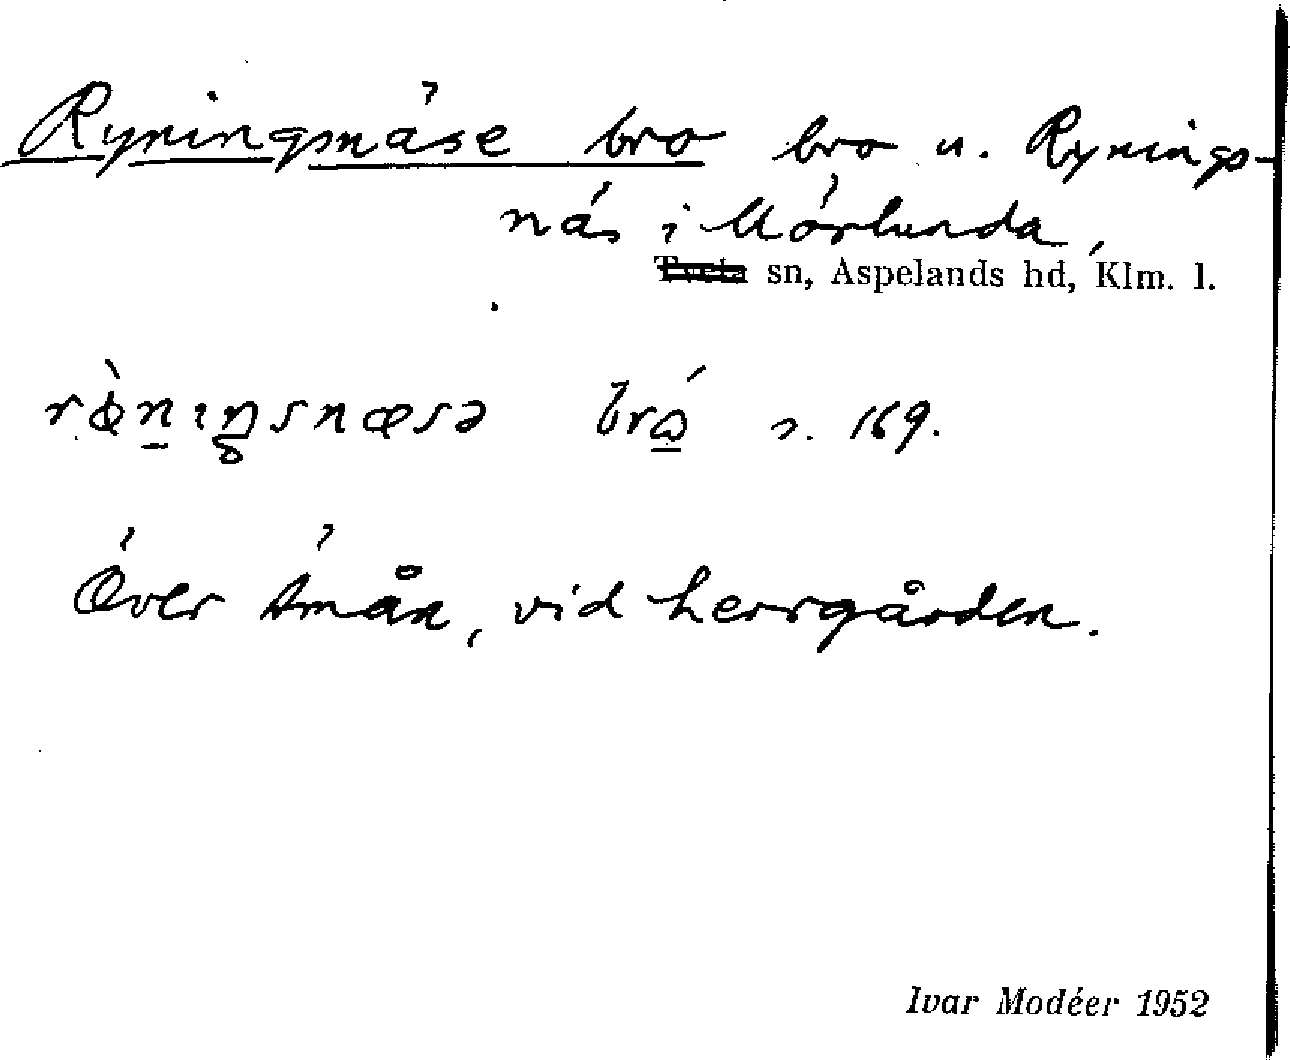 Ryningsnäse bro bro u. Rynings-
näs i Mörlunda,
Tveta sn, Aspelands hd, Klm. l.
s. 169.
Över Emån, vid herrgården.
Ivar Modéer 1952